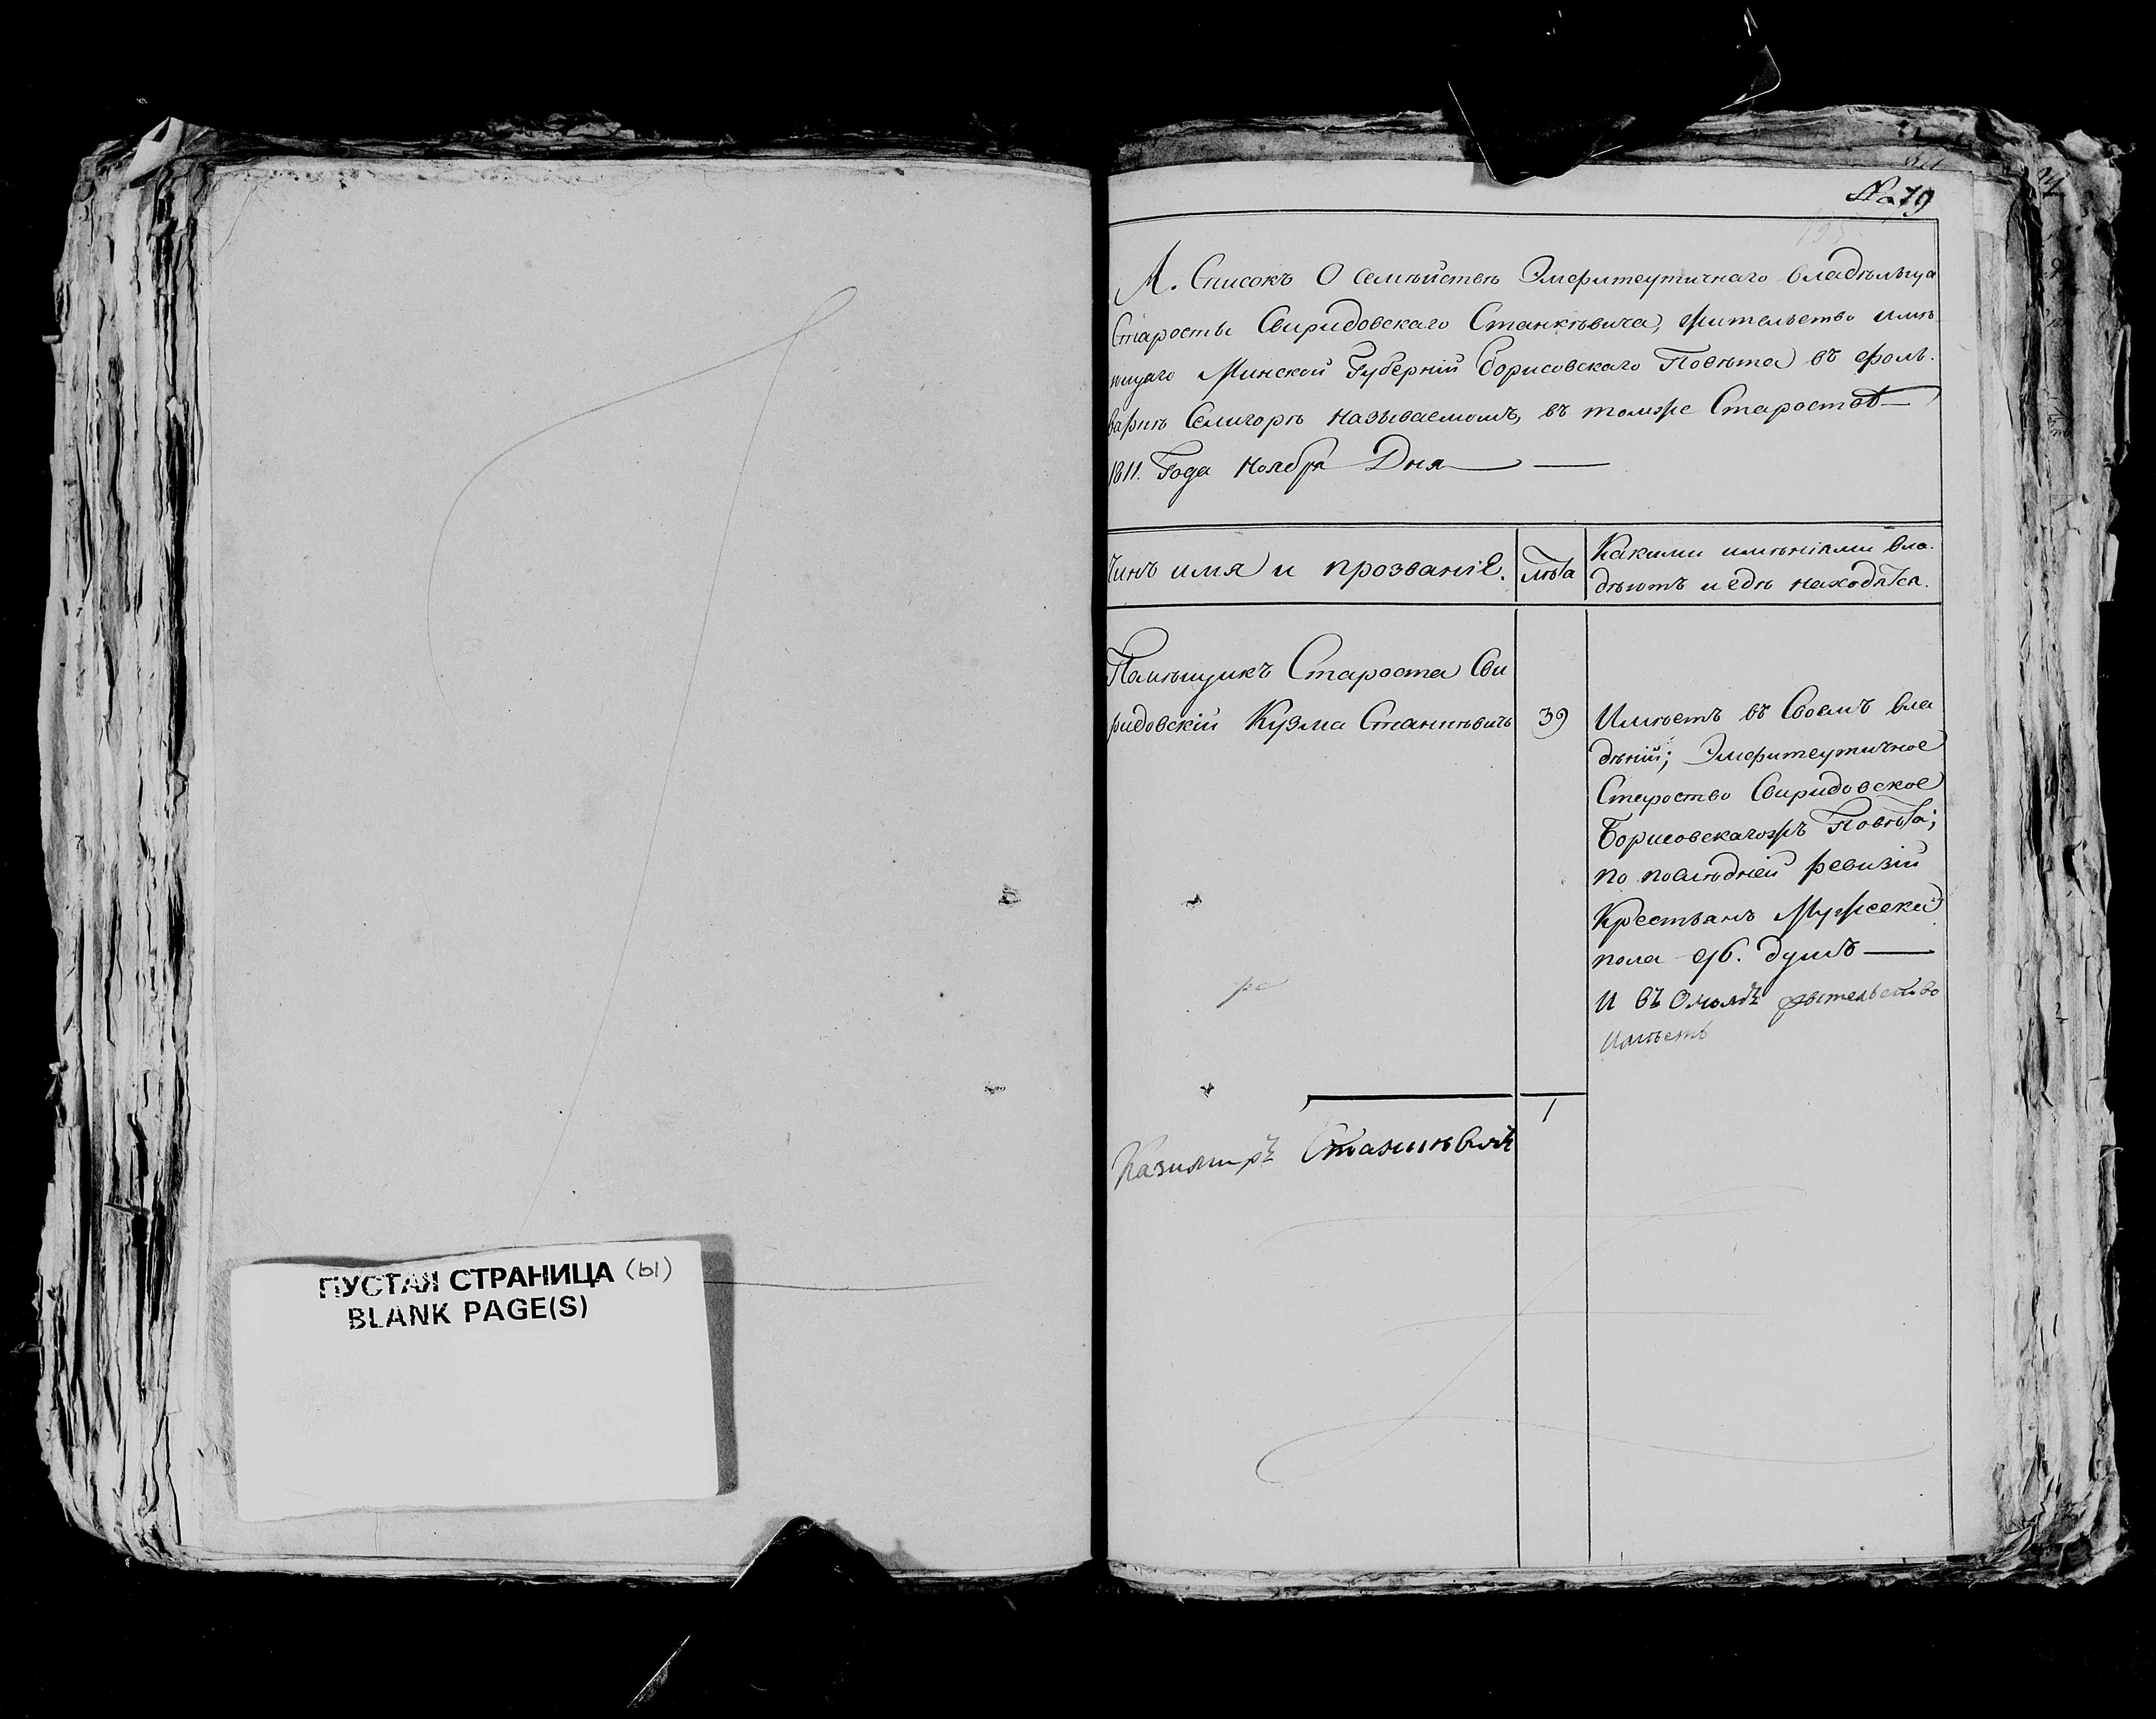 ПУСТАЯ СТРАНИЦА (ы)
BLANK PAGE(S)
№ 79
Л. Списокъ О семѣйствѣ Эмфитеутичнаго владѣльца
Старосты Свиридовскаго Станкѣвича, жительство имѣ
ющаго Минской Губерніи Борисовскаго Повѣта въ фоль-
варкѣ Селигорѣ называемомъ, въ томже Старостве
1811. Года Ноября Дня
Чинъ имя и прозваніе.
лѣта
Какими имѣніями вла-
дѣютъ и гдѣ находятся.
Помѣщикъ Староста Сви
ридовскій Кузма Станкѣвичь
39
Имѣетъ въ Своемъ вла
дѣніи; Эмфитеутичное
Староство Свиридовское
Борисовскагожъ Повѣта;
по послѣдней ревизіи
Крестьянъ Мужеска
пола 96. душъ
И въ жытельство
имѣетъ
1
Казимиръ Станкѣвичъ